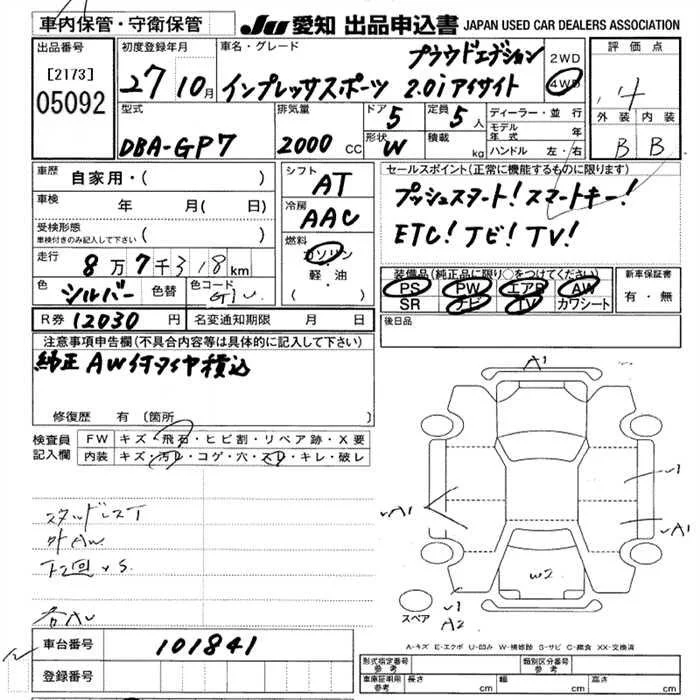 車内保管・守衛保管
JU 愛知 出品申込書 JAPAN USED CAR DEALERS ASSOCIATION
出品番号
[2173]
05092
初度登録年月
27 10月
車名・グレード
プラウドエディション
インプレッサスポーツ 2.0i アイサイト
2WD
4WD
評価点
4
外装 内装
B B
型式
DBA-GP7
排気量
2000 CC
ドア 5
形状 W
定員 5 人
積載 kg
ディーラー・並行
モデル年式 年
ハンドル 左・右
車歴 自家用・( )
車検 年 月( 日)
受検形態
車検付きのみ記入して下さい ( )
走行 8万7千318km
色 シルバー 色替 色コード G1U
R券 12030 円 名変通知期限 月 日
シフト
AT
冷房
AAC
燃料
ガソリン
軽・油
( )
セールスポイント(正常に機能するものに限ります)
プッシュスタート! スマートキー!
ETC! ナビ! TV!
装備品(純正品に限り○をつけてください)
PS PW エアB AW
SR ナビ TV カワシート
新車保証書
有・無
後日品
注意事項申告欄(不具合内容等は具体的に記入して下さい)
純正AW付タイヤ積込
修復歴 有 〔箇所 〕
検査員記入欄
FW キズ・飛石・ヒビ割・リペア跡・X要
内装 キズ・汚レ・コゲ・穴・スレ・キレ・破レ
スタッドレスT
外AW
下回りS
各AU
A1
A1
A1
W2
スペア
A2
A-キズ E-エクボ U-凹み W-補修跡 S-サビ C-腐食 XX-交換済
車台番号 101841
登録番号
形式指定番号 参考
類別区分番号 参考
車庫証明用 参考 長さ cm 幅 cm 高さ cm